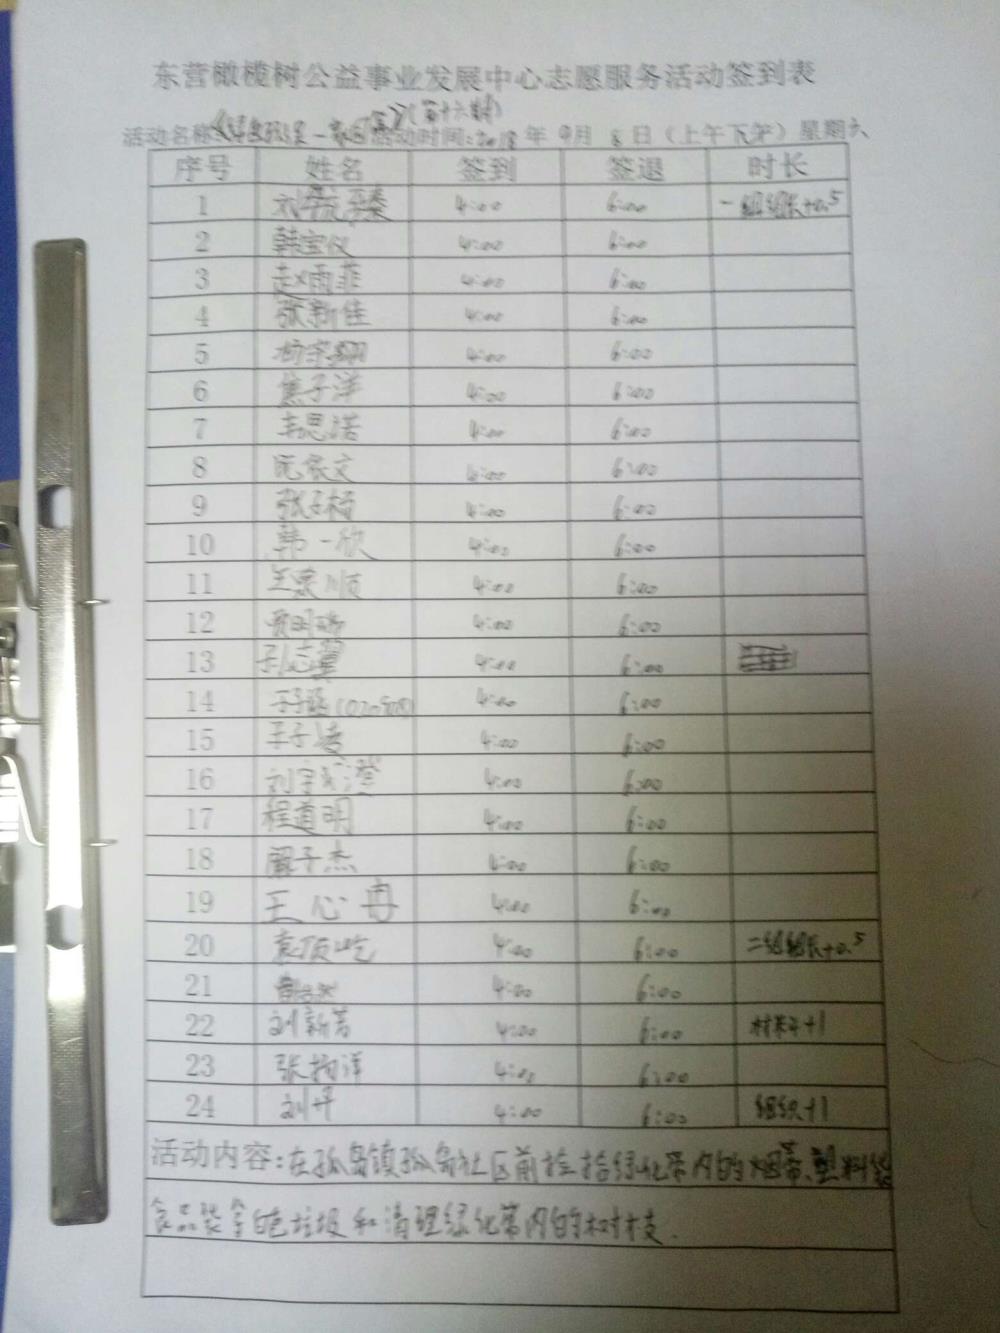 东营橄榄树公益事业发展中心志愿服务活动签到表
(第十六期)
活动名称 活动时间:2018年 9月 8日(上午下午)星期六
序号 姓名 签到 签退 时长
1 刘 4:00 6:00 一组组长+0.5
2 韩宝仪 4:00 6:00
3 赵雨菲 4:00 6:00
4 张新佳 4:00 6:00
5 杨宇翔 4:00 6:00
6 焦子洋 4:00 6:00
7 韦思诺 4:00 6:00
8 阮家文 4:00 6:00
9 张子杨 4:00 6:00
10 韩一欣 4:00 6:00
11 4:00 6:00
12 4:00 6:00
13 4:00 6:00
14 4:00 6:00
15 4:00 6:00
16 刘宇 澄 4:00 6:00
17 程道明 4:00 6:00
18 阚子杰 4:00 6:00
19 王心冉 4:00 6:00
20 袁顶屹 4:00 6:00 二组组长+0.5
21 4:00 6:00
22 刘新芳 4:00 6:00 材料+1
23 张 洋 4:00 6:00
24 刘丹 4:00 6:00 组织+1
活动内容:在孤岛镇孤岛社区前捡拾绿化带内的烟蒂、塑料袋
食品袋等白色垃圾和清理绿化带内的树枝.